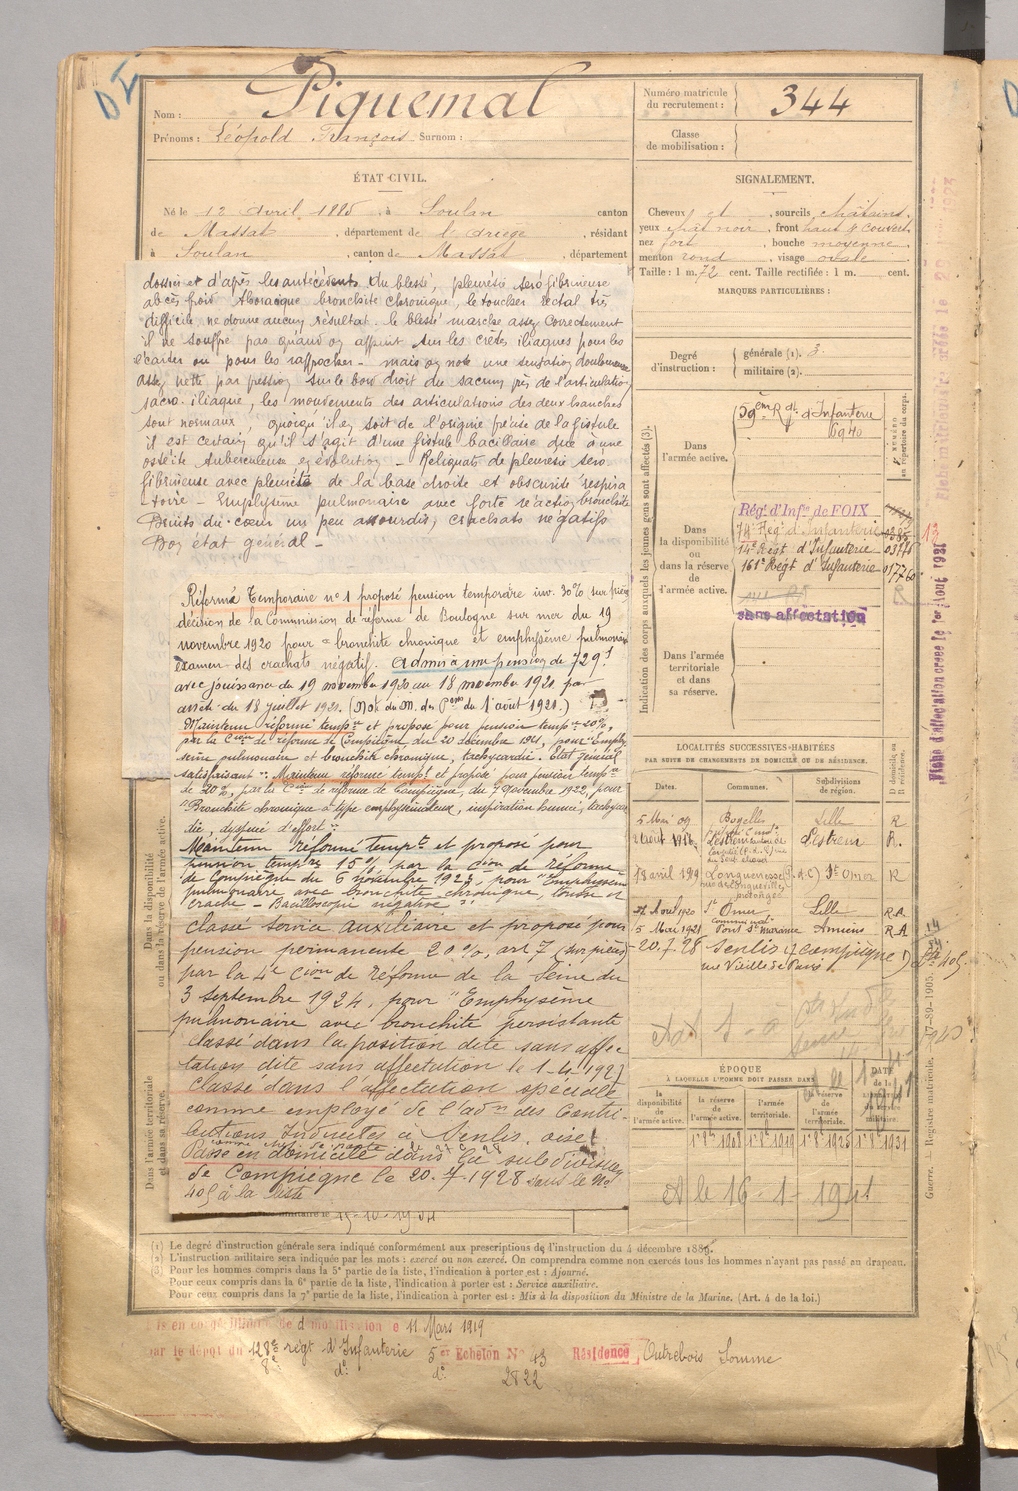 Nom : Piquemal
Prénoms : Léopold François Surnom :
ÉTAT CIVIL.
Né le 12 avril 1885, à Soulan canton
de Massat, département de l'ariège, résidant
à Soulan, canton de Massat, département
dossier et d'après les antécédents du blessé, pleurésie sero fibrineuse
abcès froid thoracique bronchite chronique, le toucher rectal très
difficile, ne donne aucun résultat. le blessé marche assez correctement
il ne souffre pas quand on appuint sur les crêtes iliaques pour les
écarter ou pour les rapprocher - mais on note une sensation douloureuse
assez nette par pression sur le bord droit du sacrum près de l'articulation
sacro-iliaque, les mouvements des articulations des deux hanches
sont normaux, quoiqu'il en soit de l'origine de la fistule
il est certain qu'il s'agit d'une fistule bacillaire due à une
ostéite tuberculeuse en évolution - Reliquats de pleurésie séro
fibrineuse avec pleurite de la base droite et obscurité respira
-toire - Emphysème pulmonaire avec forte réaction bronchite
Bruits du cœur un peu assourdis, crachats négatifs
Bon état général -
Réformé Temporaire n° 1 proposé pension temporaire inv. 30% sur pièces
décision de la Commission de réforme de Boulogne sur mer du 19
novembre 1920 pour "bronchite chronique et emphysème pulmonaire
examen des crachats négatif. Admis à une pension de 729f
avec jouissance du 19 novembre 1920 au 18 novembre 1921 par
arrêté du 18 juillet 1921. (Not. du M. des Pons du 1er août 1921.)
Maintenu réformé tempre et proposé pour pension tempre 20%,
par la Cion de réforme de Compiègne du 20 décembre 1921, pour "Emphy
sème pulmonaire et bronchite chronique, tachycardie. Etat général
satisfaisant". Maintenu réformé tempre et proposé pour pension tempre
de 20%, par la Cion de réforme de Compiègne, du 7 Novembre 1922, pour
"Bronchite chronique à type emphysémateux, inspiration humée, tachycar
die, dyspnée d'effort".
Maintenu réformé tempre et proposé pour
pension tempre 15% par la Cion de réforme
de Compiègne du 6 novembre 1923, pour "Emphysème
pulmonaire avec bronchite chronique, tousse et
crache - Bacilloscopie négative".
Classé service auxiliaire et proposé pour
pension permanente 20%, art 7 (sur pièces)
par la 4e Cion de réforme de la Seine du
3 septembre 1924, pour "Emphysème
pulmonaire avec bronchite persistante
Classé dans la position dite sans affec
tation dite sans affectation le 1-4-1927
Classé dans l'affectation spéciale
comme employé de l'adon des Contri
butions Indirectes à Senlis, oise
Passé en domicile dans la subdivision
de Compiègne le 20.7.1928 sous le No
405 à la liste
15-10-1934
Numéro matricule
du recrutement : 344
Classe
de mobilisation :
SIGNALEMENT.
Cheveux et, sourcils châtains.
yeux chât noir, front haut & couvert
nez fort, bouche moyenne
menton rond, visage ovale
Taille : 1 m. 72 cent. Taille rectifiée : 1 m. cent.
MARQUES PARTICULIÈRES :
Degré
d'instruction :
générale (1). 3.
militaire (2).
Indication des corps auxquels les jeunes gens sont affectés (3).
NUMÉRO
au répertoire du corps.
Dans
l'armée active.
59ème Rgt d'Infanterie
6940
Dans
la disponibilité
ou
dans la réserve
de
l'armée active.
Régt d'Infie de FOIX
74e Régt d'Infanterie
14e Régt d'Infanterie
161e Régt d'Infanterie 01776
sans affectation
Dans l'armée
territoriale
et dans
sa réserve.
Fiche d'affectation créée le 1er Août 1921
LOCALITÉS SUCCESSIVES HABITÉES
PAR SUITE DE CHANGEMENTS DE DOMICILE OU DE RÉSIDENCE.
Dates. Communes. Subdivisions de région. D domicile ou R résidence.
5 Mai 09 Lille R
R.
18 avril 1919 Longuenesse (P. d. C) St Omer R
rue de Longueville
prolongée
27 Avril 1920 St Omer Lille RA
5 Mai 1921 Pont Ste Maxence Amiens RA
20.7.28 Senlis Compiègne D
rue Vieille de Paris
ÉPOQUE
À LAQUELLE L'HOMME DOIT PASSER DANS
la disponibilité de l'armée active.
la réserve de l'armée active.
l'armée territoriale.
la réserve de l'armée territoriale.
DATE de la
1er 8bre 1908 1er 8bre 1919 1er 8bre 1925 1er 8bre 1931
le 16-1-1941
Dans la disponibilité
ou dans la réserve de l'armée active.
Dans l'armée territoriale
et dans sa réserve.
Guerre. — Registre matricule.
(1) Le degré d'instruction générale sera indiqué conformément aux prescriptions de l'instruction du 4 décembre 1889.
(2) L'instruction militaire sera indiquée par les mots : exercé ou non exercé. On comprendra comme non exercés tous les hommes n'ayant pas passé au drapeau.
(3) Pour les hommes compris dans la 5e partie de la liste, l'indication à porter est : Ajourné.
Pour ceux compris dans la 6e partie de la liste, l'indication à porter est : Service auxiliaire.
Pour ceux compris dans la 7e partie de la liste, l'indication à porter est : Mis à la disposition du Ministre de la Marine. (Art. 4 de la loi.)
is en congé illimité de d mobilisation le 11 Mars 1919
par le dépôt du 128e régt d'Infanterie 5er Echelon N° 43 Résidence Outrebois Somme
8e d° d° 2822